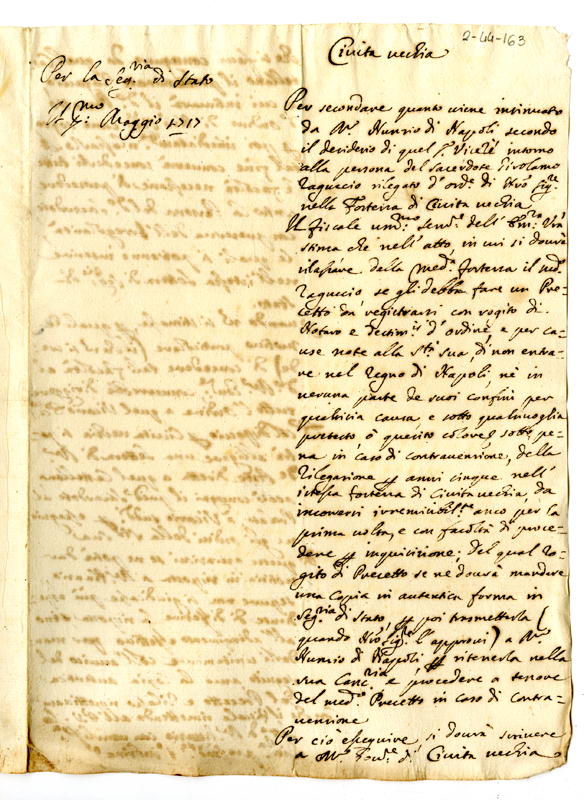 2-44-163
Civita vecchia
Per la Seg.ria di Stato
li Maggio 1717
Per secondare quanto viene insinuato
da M.r Nunzio di Napoli secondo
il desiderio di quel S. Viceré intorno
alla persona del Sacerdote Girolamo
Raguccio rilegato d'ord.e di Nro Sig.re
nella Fortezza di Civita vecchia
Il fiscale um.mo Serv.e dell' Em.za Vra
stima che nell' atto, in cui si dovrà
rilasciare dalla med.a fortezza il med.o
Raguccio se gli debba fare un Pre-
cetto da registrarsi con rogito di
Notaro e testim.ii d'ordine, e per ca-
use note alla S.tà Sua, di non entra-
re nel Regno di Napoli, né in
veruna parte de suoi confini per
qualsisia causa, e sotto qualsivoglia
pretesto, ò quesito colore, sotto pe-
na in caso di contravenzione, della
Rilegazione p anni cinque nell'
istessa fortezza di Civita vecchia, da
incorrersi irremissibil.te anco per la
prima volta, e con facoltà di proce-
dere p inquisizione; Del qual ro-
gito di Precetto se ne dovrà mandare
una Copia in autentica forma in
Seg.ria di Stato, p poi trasmetterla (
quando Nro Sig.re l'approvi) a M.r
Nunzio di Napoli p ritenerla nella
sua Canc.ria, e procedere a tenore
del med.o Precetto in caso di Contra-
venzione
Per ciò eseguire si dovrà scrivere
a M.r Gov.re di Civita vecchia